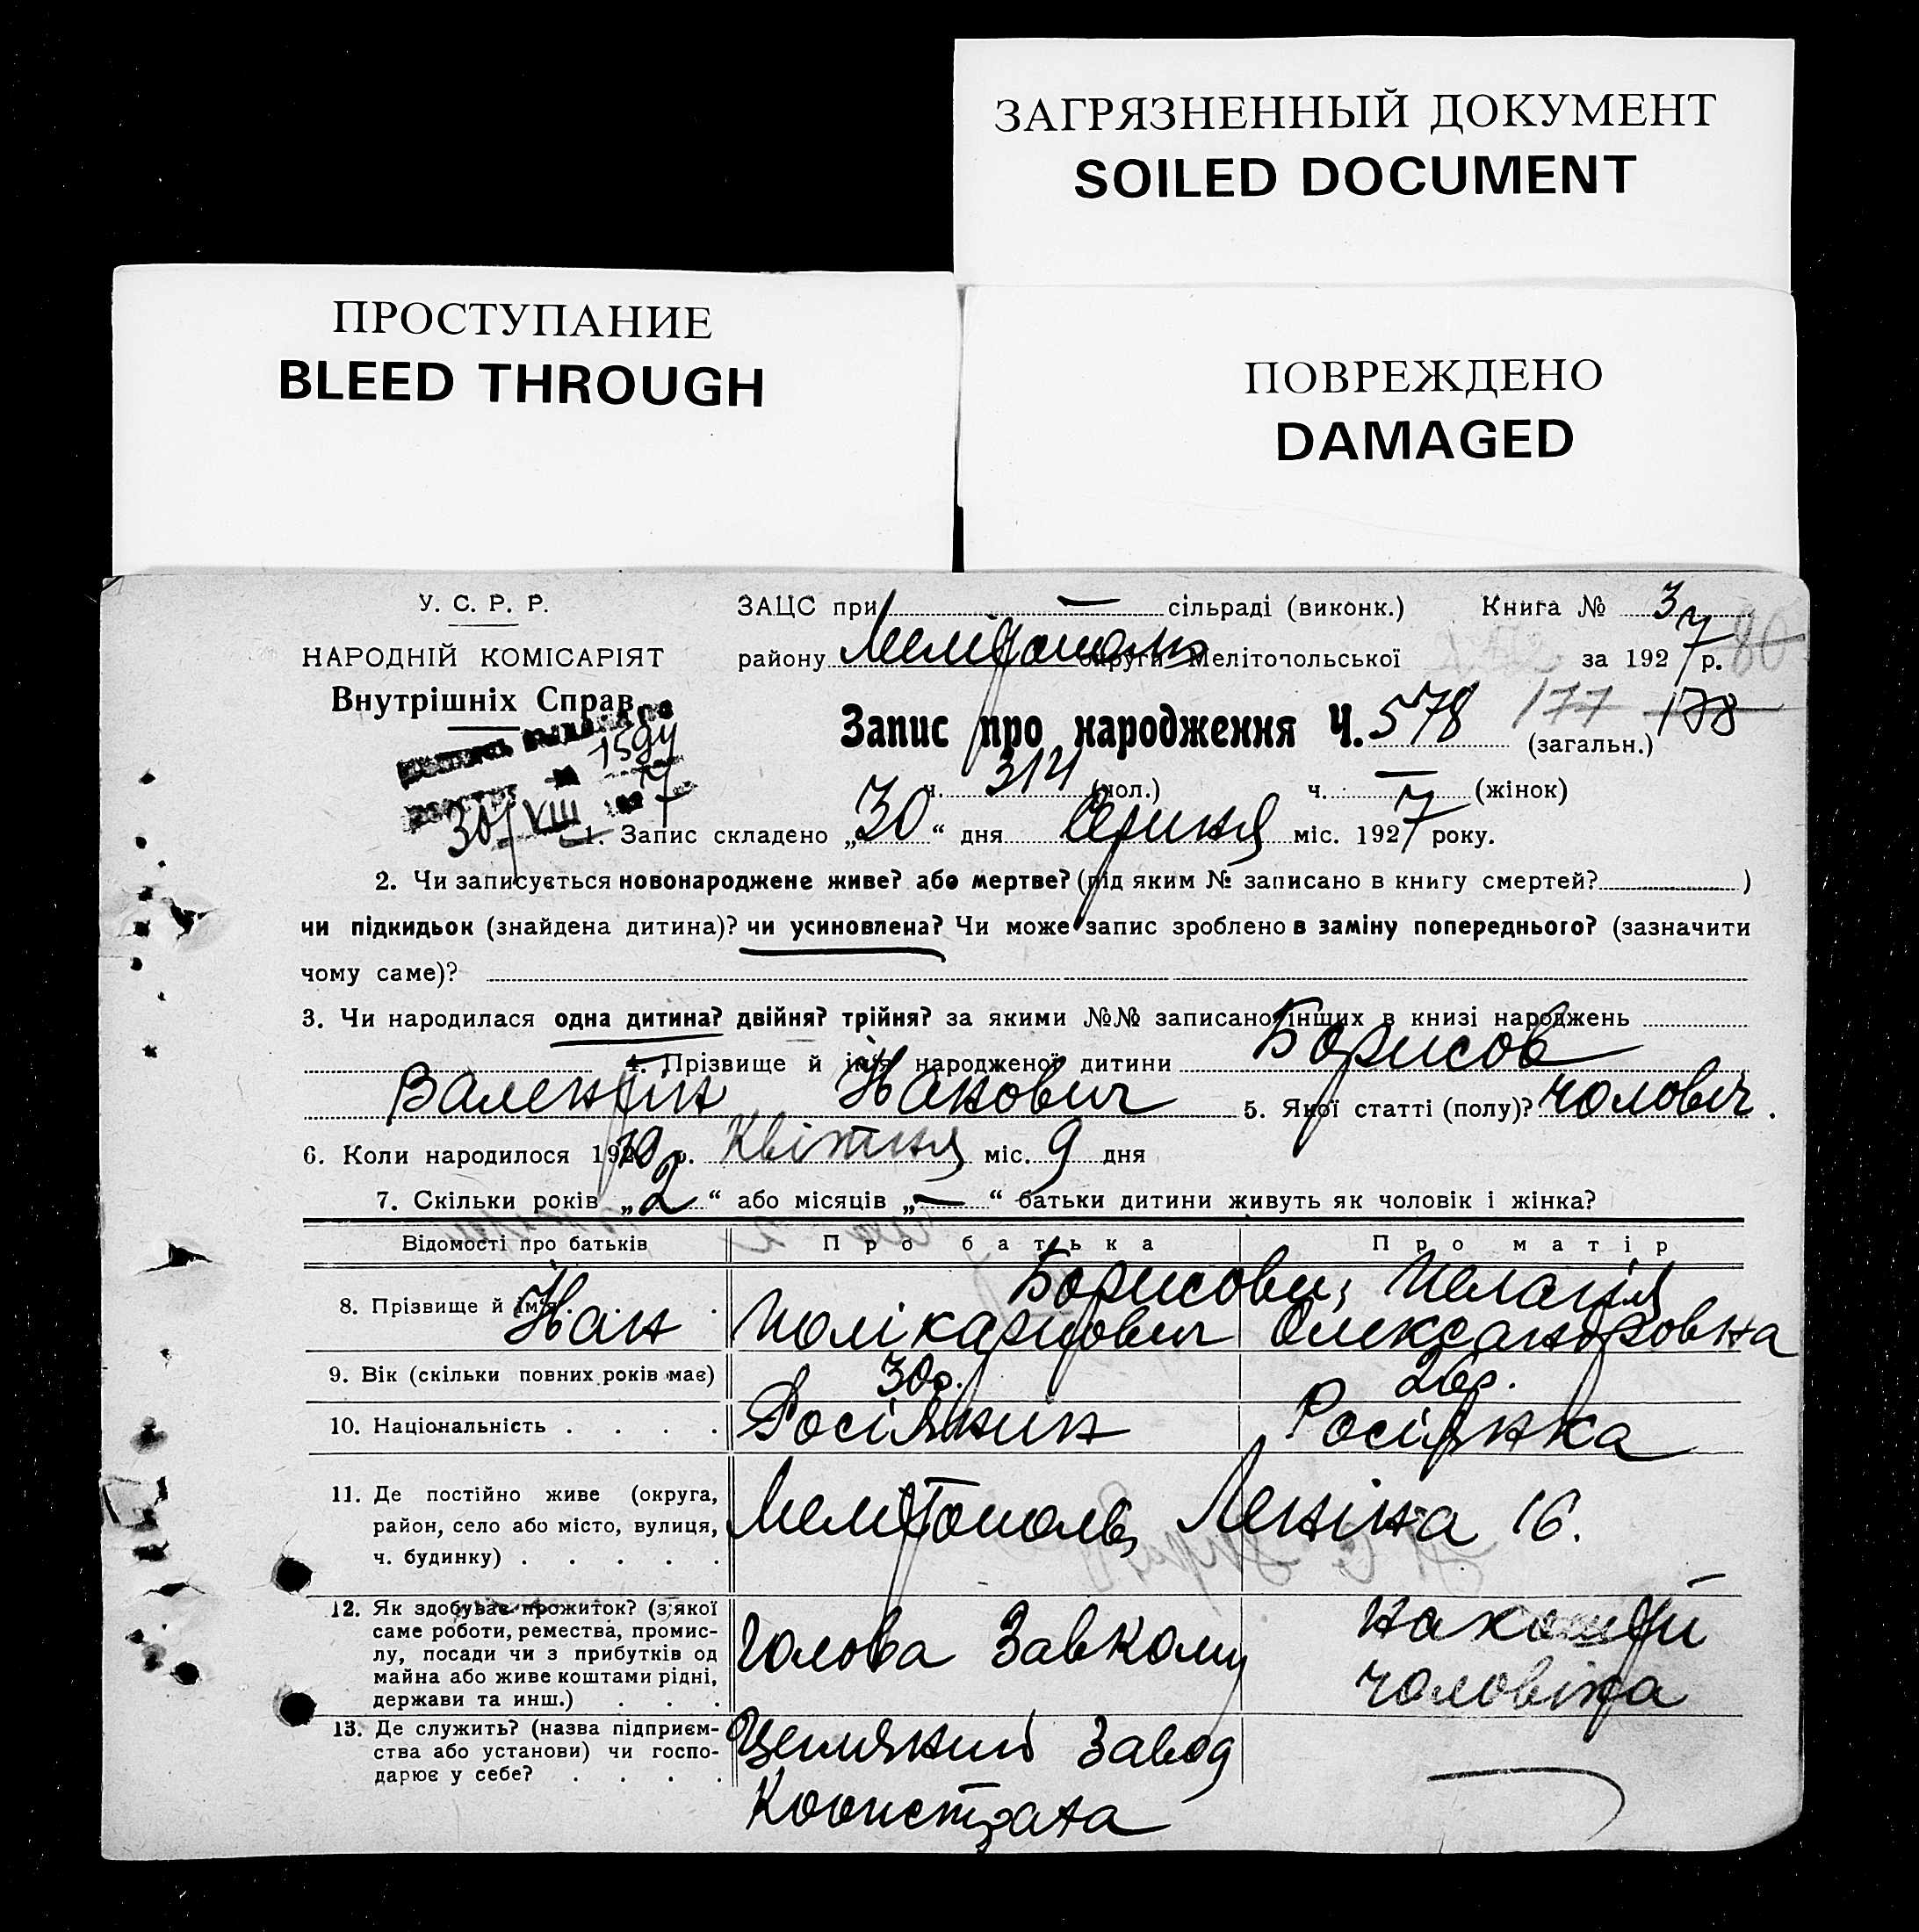 ЗАГРЯЗНЕННЫЙ ДОКУМЕНТ
SOILED DOCUMENT
ПРОСТУПАНИЕ
BLEED THROUGH
ПОВРЕЖДЕНО
DAMAGED
У. С. Р. Р.
НАРОДНІЙ КОМІСАРІЯТ
Внутрішніх Справ
1594
30/VIII 1927
ЗАЦС при — сільраді (виконк.) Книга № 3
району Мелітополь округи Мелітопольської за 1927 р. 80
Запис про народження Ч. 578 (загальн.) 177 178
ч. 314 (чол.) ч. — (жінок)
1. Запис складено „30“ дня Серпня міс. 1927 року.
2. Чи записується новонароджене живе? або мертве? (під яким № записано в книгу смертей? )
чи підкидьок (знайдена дитина)? чи усиновлена? Чи може запис зроблено в заміну попереднього? (зазначити
чому саме)?
3. Чи народилася одна дитина? двійня? трійня? за якими №№ записано інших в книзі народжень
4. Прізвище й ім'я народженої дитини Борисов
Валентін Іванович 5. Якої статті (полу)? чоловіч.
6. Коли народилося 192 р. Квітня міс. 9 дня
7. Скільки років „2“ або місяців „—“ батьки дитини живуть як чоловік і жінка?
Відомості про батьків Про батька Про матір
8. Прізвище й ім'я Борисови, Пелагія
Іван Полікарпович Олександровна
9. Вік (скільки повних років має) 30р. 26р.
10. Національність Росіянин Росіянка
11. Де постійно живе (округа,
район, село або місто, вулиця,
ч. будинку)
Мелітополь, Леніна 16.
12. Як здобуває прожиток? (з якої
саме роботи, ремества, промис-
лу, посади чи з прибутків од
майна або живе коштами рідні,
держави та инш.)
Голова Завкому
на кошти
чоловіка
13. Де служить? (назва підприєм-
ства або установи) чи госпо-
дарює у себе?
Завод